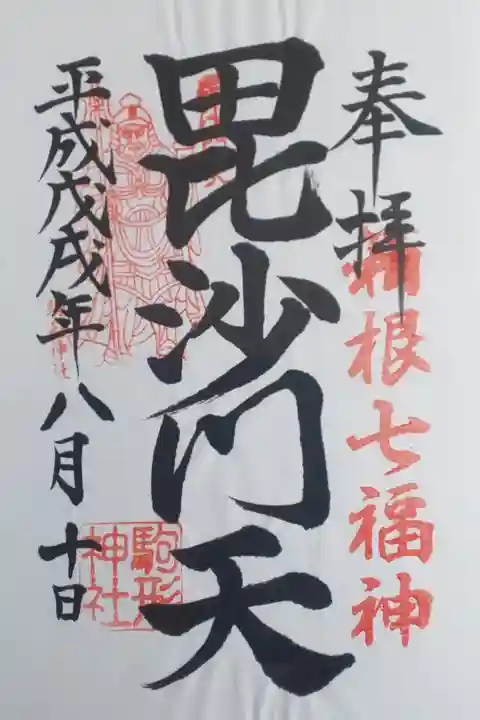 奉拝
箱根七福神
毘沙門天
平成戊戌年八月十日
駒形
神社